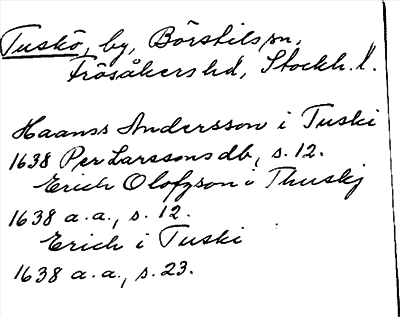 Tuskö, by, Börstils sn,
Frösåkers hd, Stockh. l.
Haanss Andersson i Tuski
1638 Per Larssons db, s. 12.
Erich Olofzson i Thuskj
1638 a. a., s. 12.
Erich i Tuski
1638 a. a., s. 23.